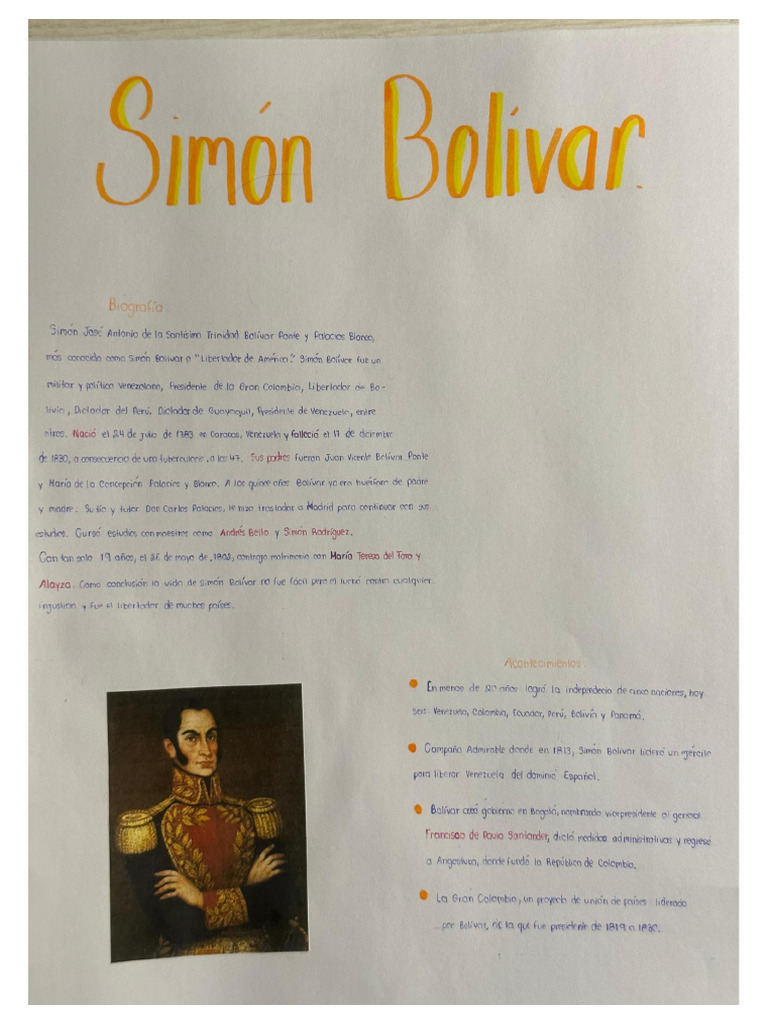 Simón Bolívar.
Biografía
Simón José Antonio de la Santísima Trinidad Bolívar Ponte y Palacios Blanco,
más conocido como Simón Bolívar o "Libertador de América". Simón Bolívar fue un
militar y político venezolano, Presidente de la Gran Colombia, Libertador de Bo-
livia, Dictador del Perú, Dictador de Guayaquil, Presidente de Venezuela, entre
otros. Nació el 24 de julio de 1783 en Caracas, Venezuela y falleció el 17 de diciembre
de 1830, a consecuencia de una tuberculosis, a los 47. Sus padres fueron Juan Vicente Bolívar Ponte
y María de la Concepción Palacios y Blanco. A los quince años Bolívar ya era huérfano de padre
y madre. Su tío y tutor Don Carlos Palacios, le hizo trasladar a Madrid para continuar con sus
estudios. Cursó estudios con maestros como Andrés Bello y Simón Rodríguez.
Con tan solo 19 años, el 26 de mayo de 1802, contrajo matrimonio con María Teresa del Toro y
Alayza. Como conclusión la vida de Simón Bolívar no fue fácil pero el luchó contra cualquier
injusticia y fue el libertador de muchos países.
Acontecimientos:
En menos de 20 años logró la independecia de cinco naciones, hoy
seis: Venezuela, Colombia, Ecuador, Perú, Bolivia y Panamá.
Campaña Admirable donde en 1813, Simón Bolívar lideró un ejército
para liberar Venezuela del dominio Español.
Bolívar creó gobierno en Bogotá, nombrando vicepresidente al general
Francisco de Paula Santander, dictó medidas administrativas y regresó
a Angostura, donde fundó la República de Colombia.
La Gran Colombia, un proyecto de unión de países liderado
por Bolívar, de la que fue presidente de 1819 a 1830.